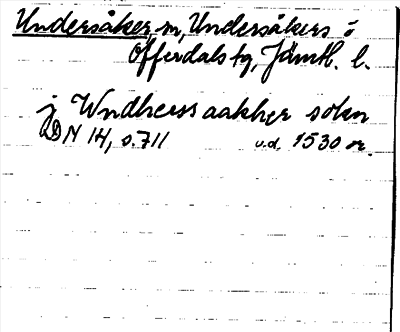 Undersåker, sn, Undersåkers o
Offerdals tg, Jämtl. l.
j Wndherssaakher sokn
DN 14, s. 711 u.d. 1530 or.